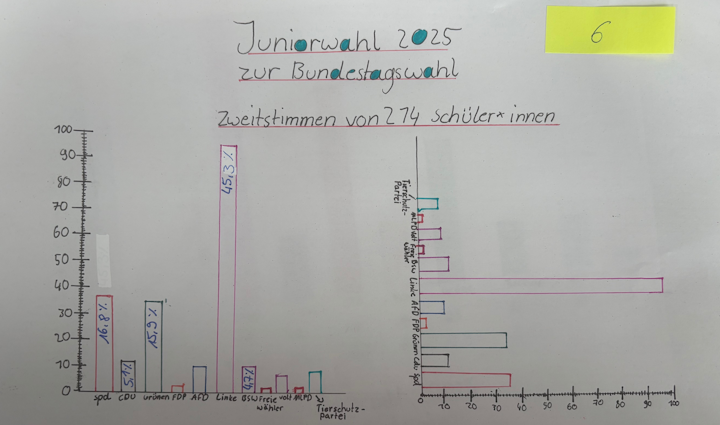 Juniorwahl 2025
6
zur Bundestagswahl
Zweitstimmen von 274 Schüler*innen
100
90
80
70
60
50
40
30
20
10
0
16,8%
5,1%
15,9%
45,3%
4,7%
spd
CDU
Grünen
FDP
AfD
Linke
BSW
Freie
wähler
volt
MLPD
Tierschutz-
Partei
Tierschutz-
Partei
MLPD
Volt
Freie
wähler
BSW
Linke
AFD
FDP
Grünen
CDU
Spd
0
10
20
30
40
50
60
70
80
90
100